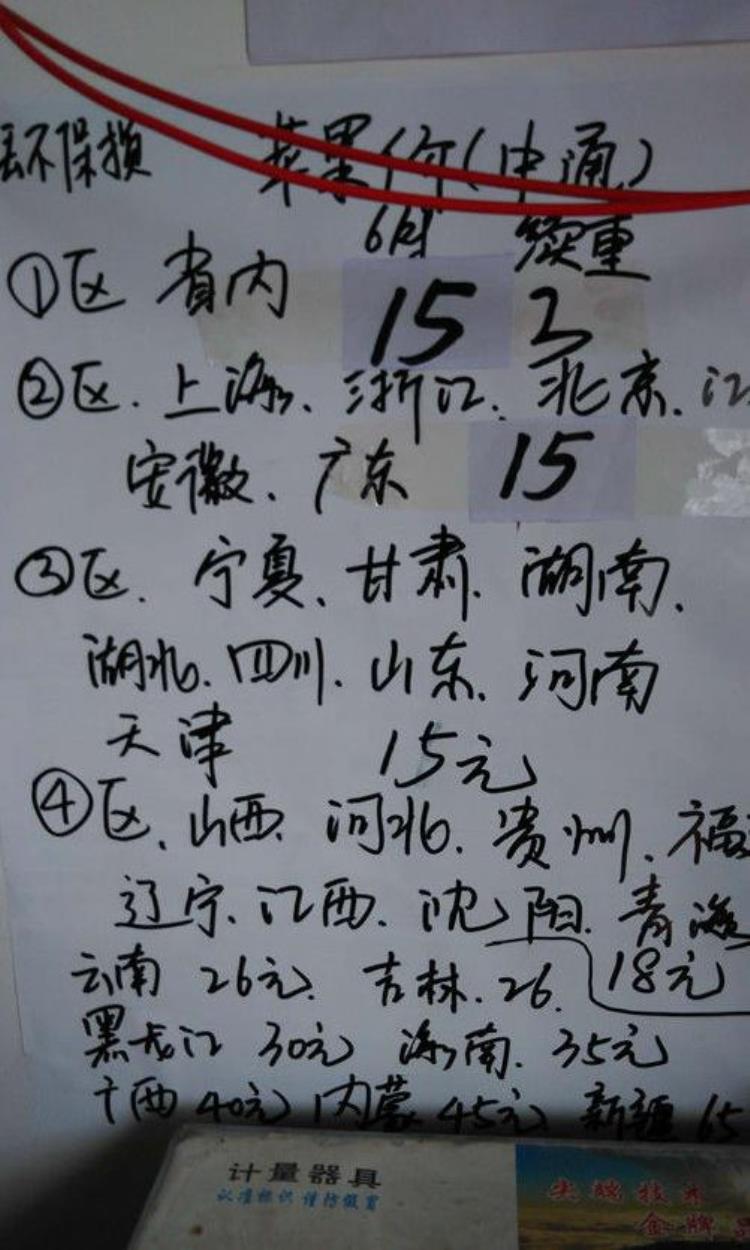 丢不保损 苹果价(中通)
6斤 续重
①区 省内 15 3
②区. 上海、浙江、北京. 江
安徽、广东 15
③区. 宁夏、甘肃. 湖南.
湖北. 四川. 山东. 河南
天津 15元
④区、山西. 河北. 贵州. 福
辽宁. 江西. 沈阳. 青海
云南 26元. 吉林. 26. 18元
黑龙江 30元 海南. 35元
广西 40元 内蒙 45元 新疆
计量器具
认准标识 谨防假冒
尖端技术
金牌